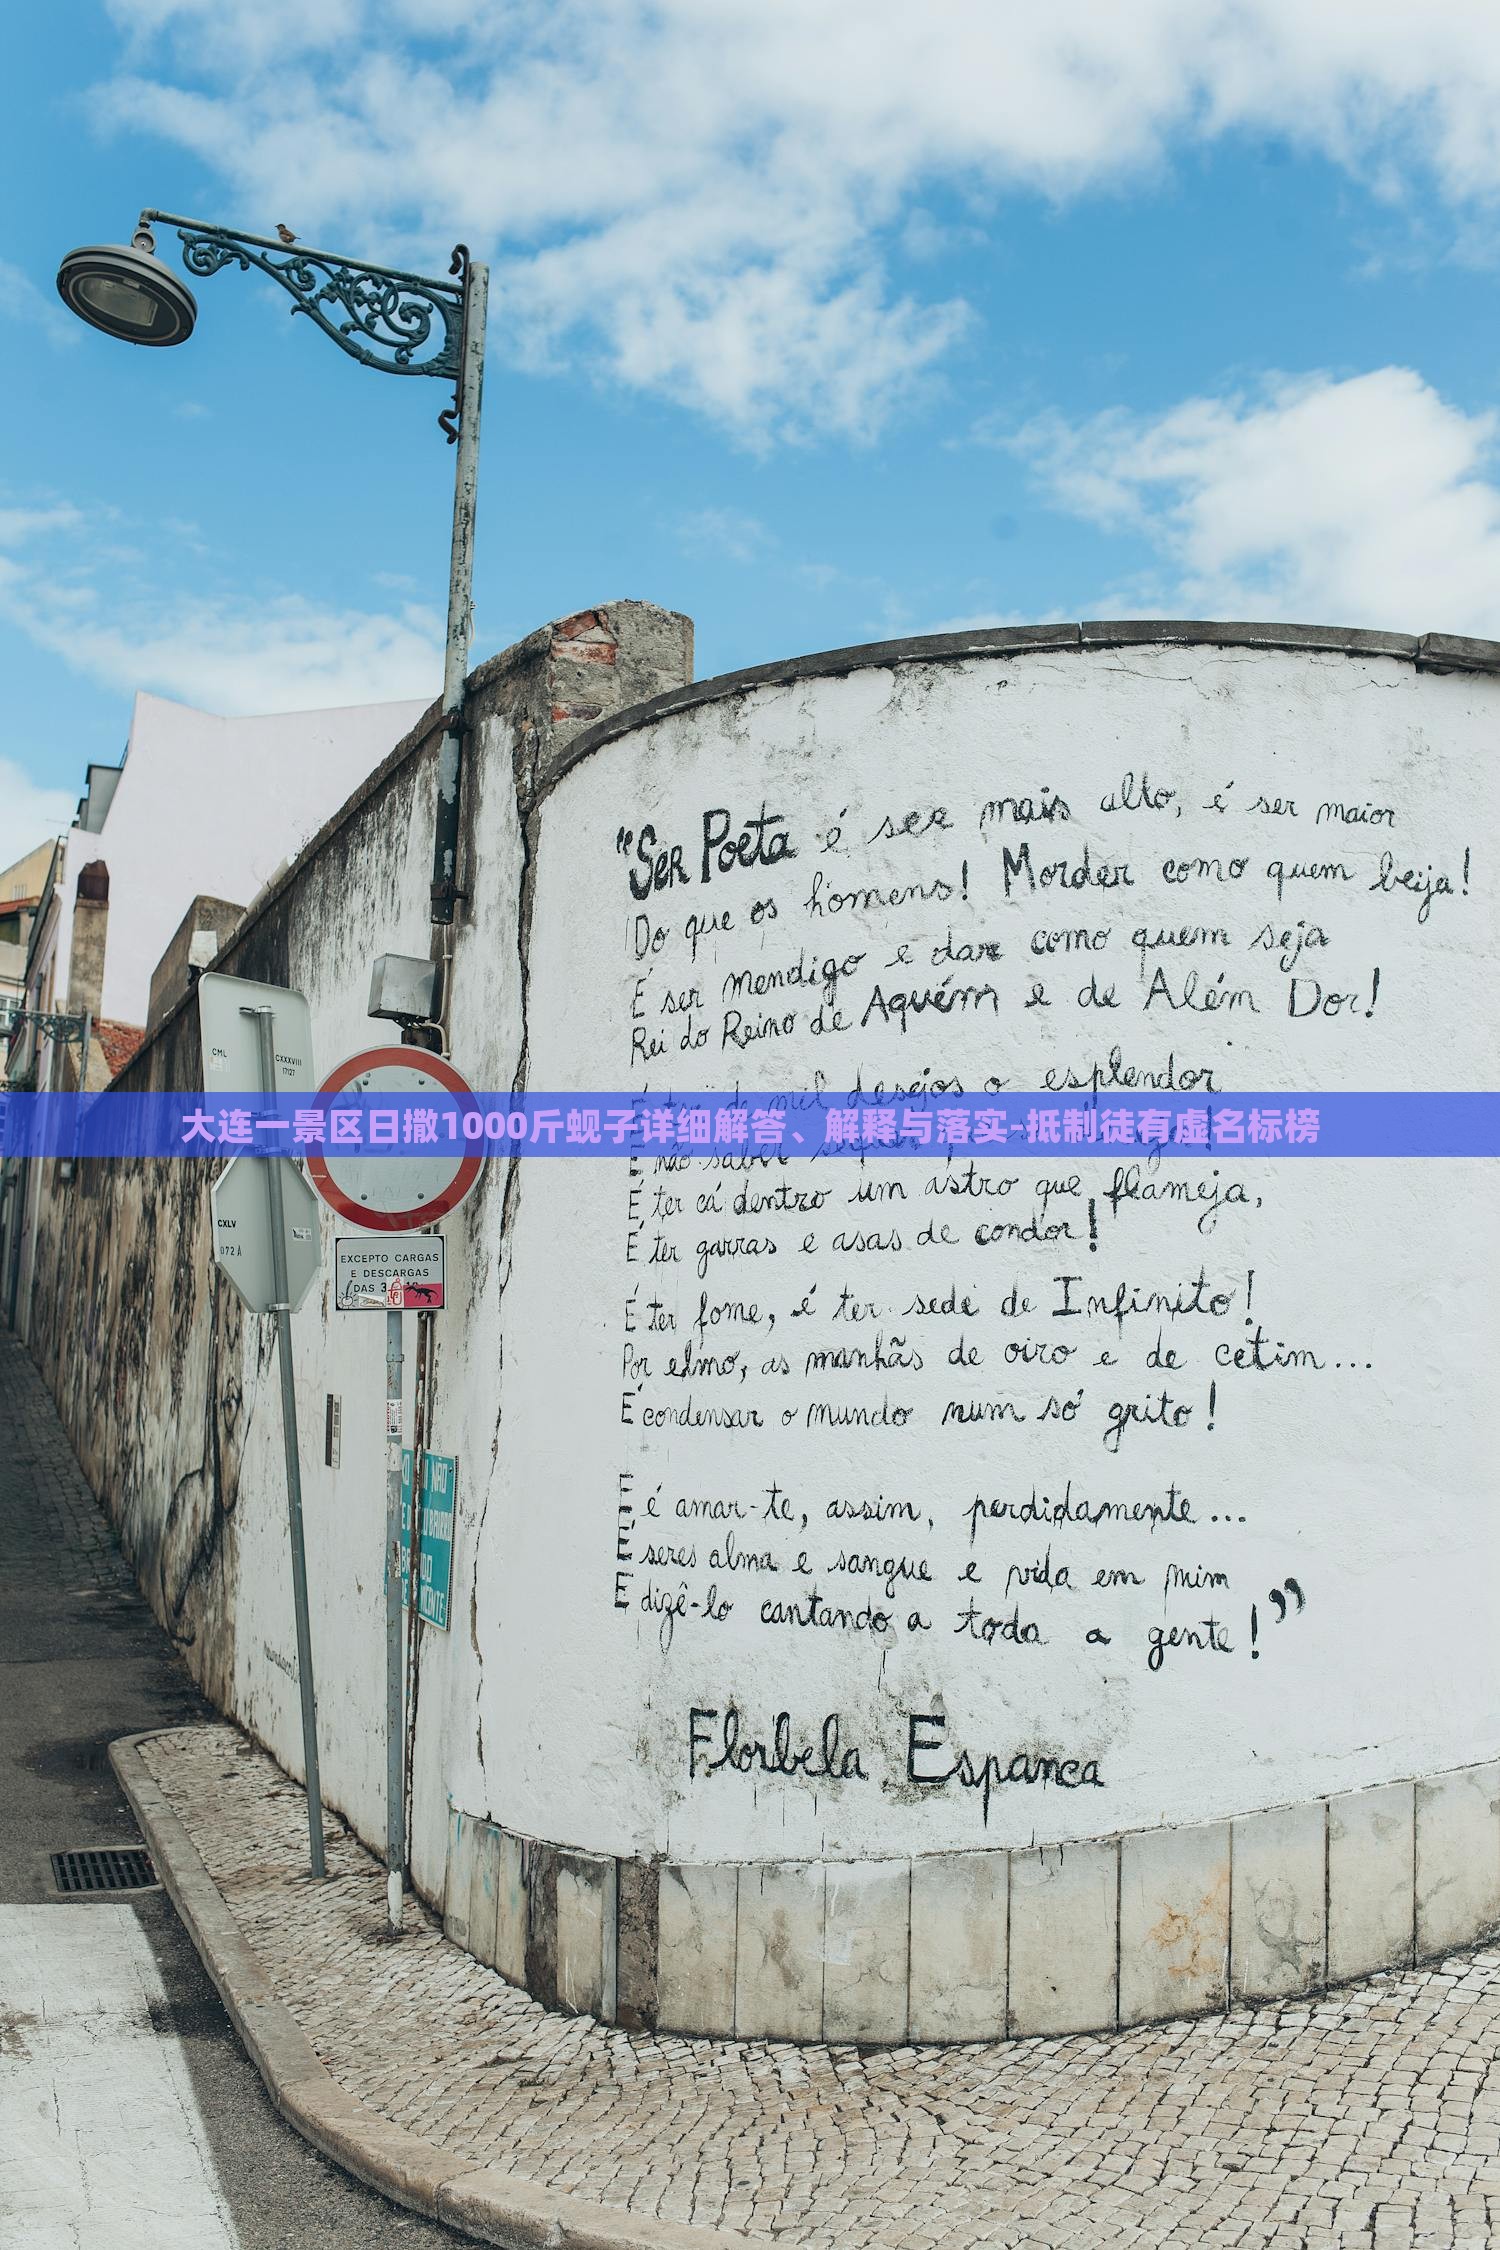 "Ser Poeta é ser mais alto, é ser maior
Do que os homens! Morder como quem beija!
É ser mendigo e dar como quem seja
Rei do Reino de Aquém e de Além Dor!
mil desejos o esplendor
大连一景区日撒1000斤蚬子详细解答、解释与落实-抵制徒有虚名标榜
E não saber
É ter cá dentro um astro que flameja,
É ter garras e asas de condor!
É ter fome, é ter sede de Infinito!
Por elmo, as manhãs de oiro e de cetim...
É condensar o mundo num só grito!
E é amar-te, assim, perdidamente...
É seres alma e sangue e vida em mim
E dizê-lo cantando a toda a gente!"
Florbela Espanca
CML
CXXXVIII
17127
CXLV
072A
EXCEPTO CARGAS
E DESCARGAS
DAS
NÃO